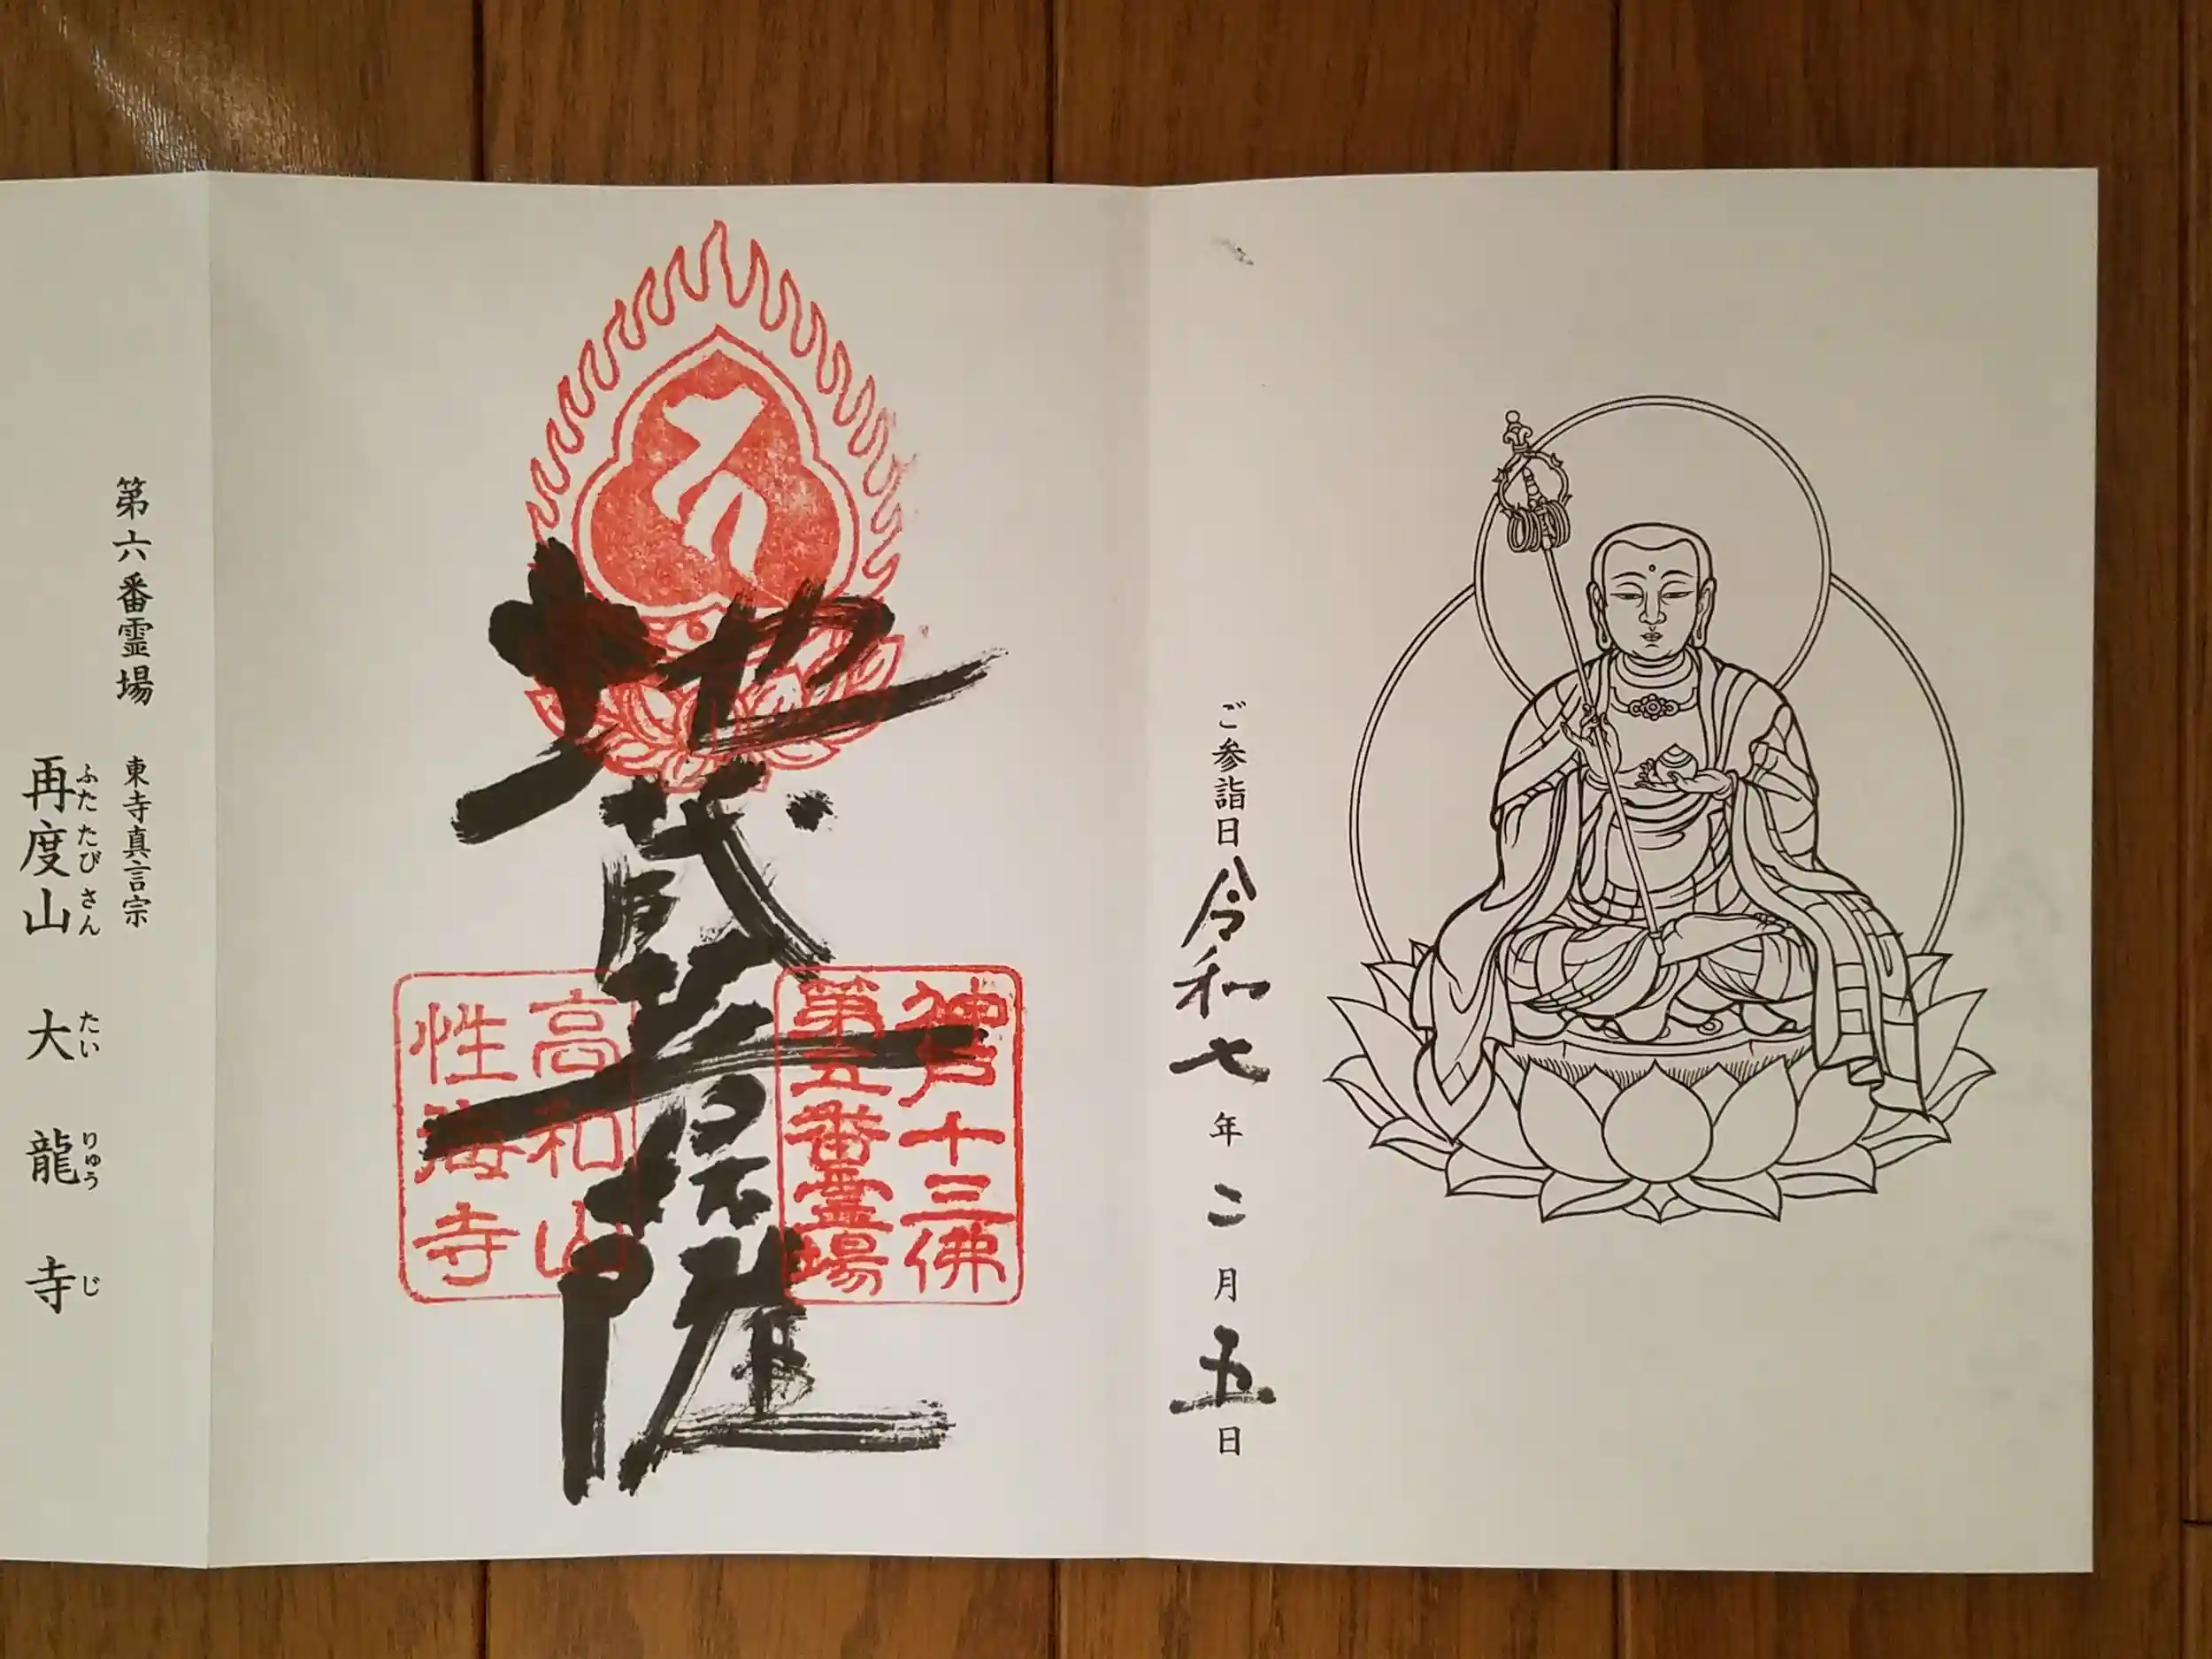 ご参詣日 令和七年二月五日
地蔵菩薩
神戸十三佛
第五番霊場
高和山
性海寺
第六番霊場 東寺真言宗
再度山 大龍寺
ふたたびさん たいりゅうじ